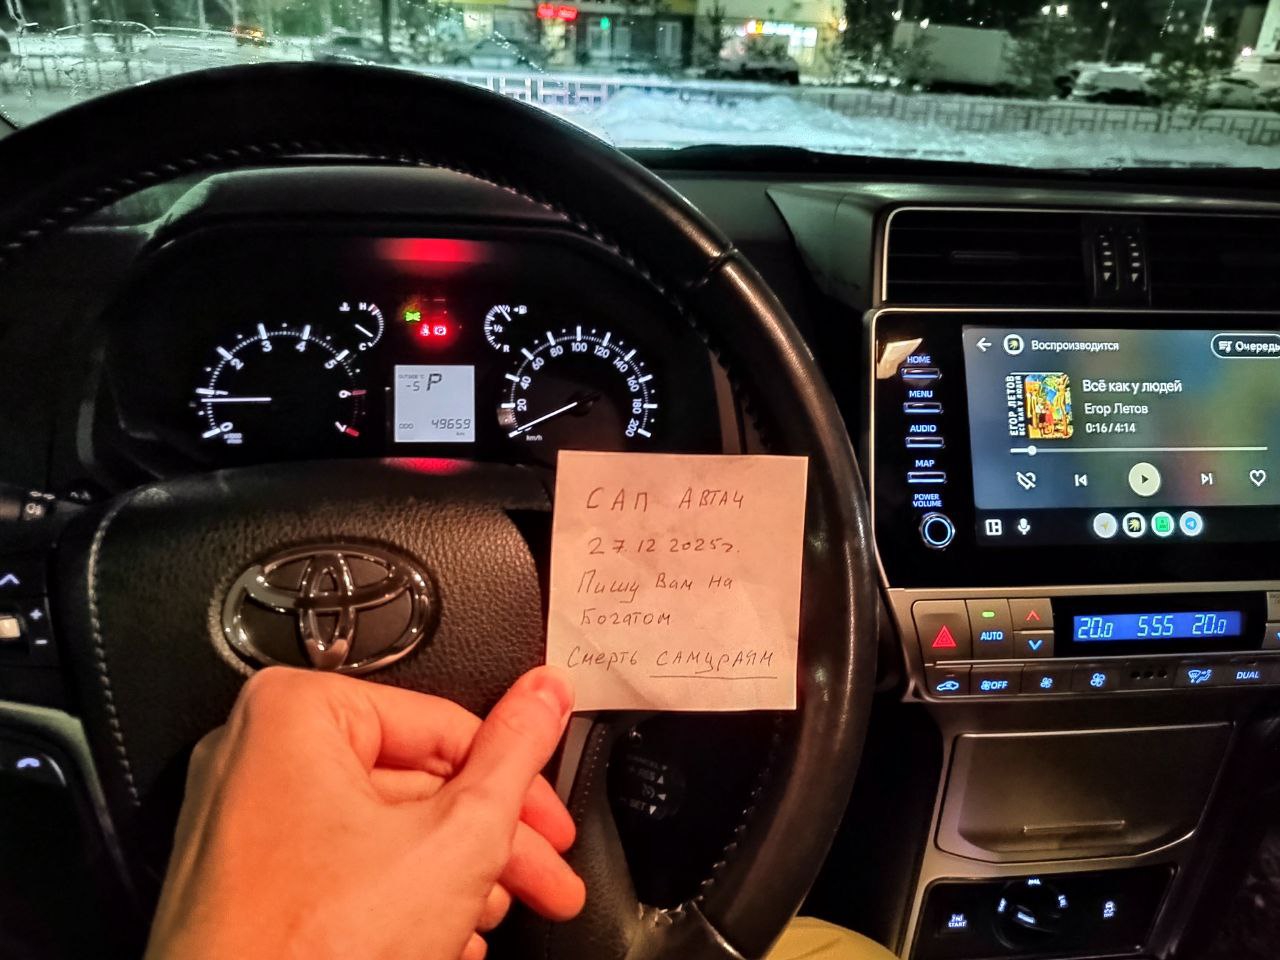 САП АВТАЧ
27.12 2025г.
Пишу Вам на
Богатом
Смерть САМУРАЯМ
HOME
MENU
AUDIO
MAP
POWER
VOLUME
Воспроизводится
Очередь
ЕГОР ЛЕТОВ
Всё как у людей
Егор Летов
0:16 / 4:14
AUTO
20.0 555 20.0
OFF
DUAL
0 1 2 3 4 5 6 7
H
C
OUTSIDE °C
-5 P
ODO 49659
km
1/2
R
20 40 60 80 100 120 140 160 180 200
km/h
RES
SET
2nd
START